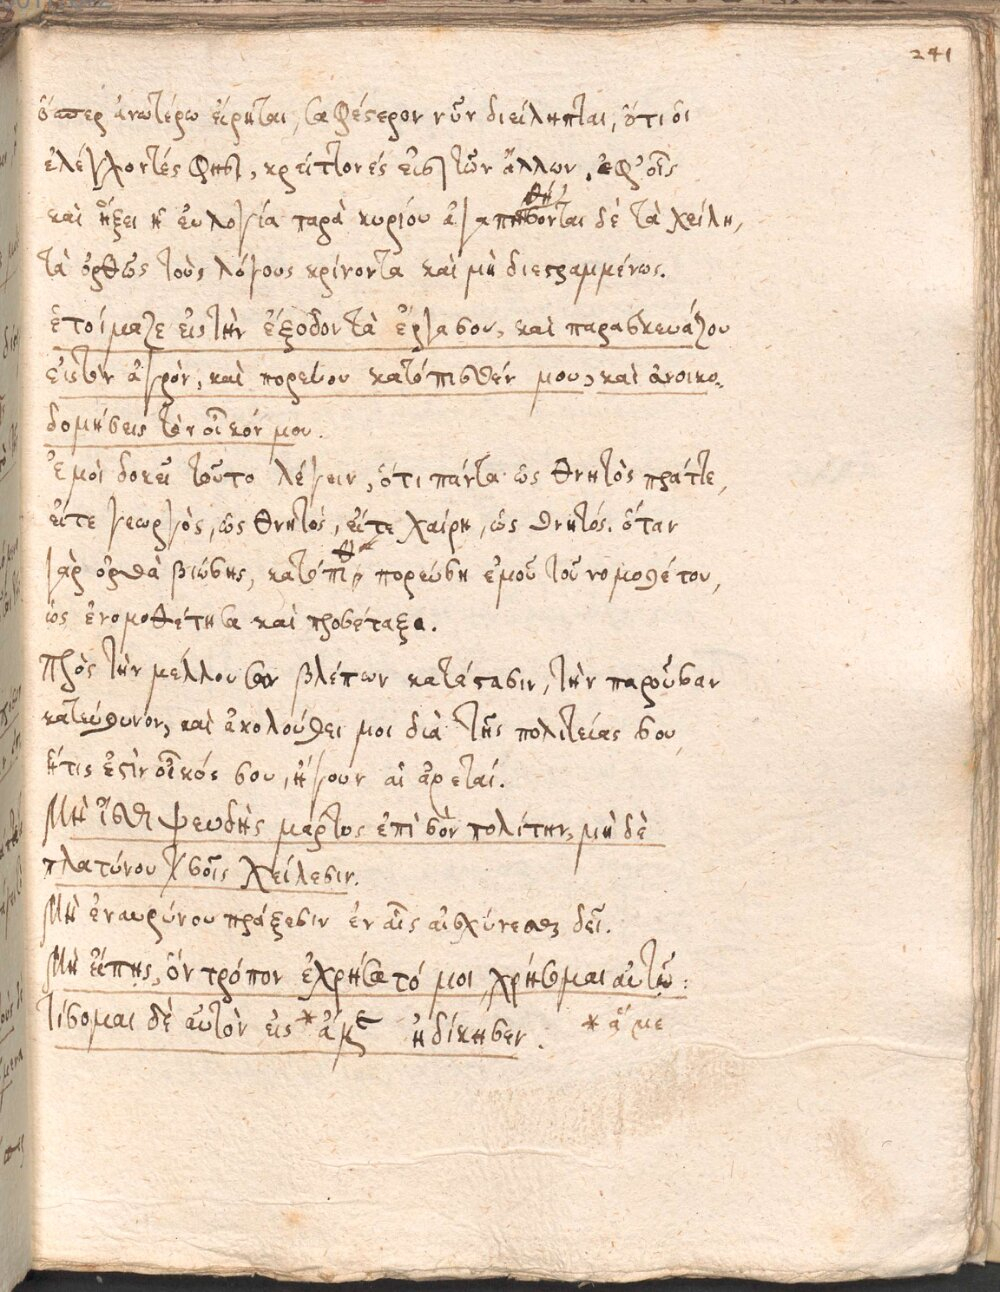 241
ὅπερ ἀνωτέρω εἴρηται, σαφέστερον νῦν διείληπται, ὅτι οἱ
ἐλέγχοντές φησι, κρείττονές εἰσι τῶν ἄλλων, ἐφ' οἷς
καὶ ἥξει ἡ εὐλογία παρὰ κυρίου ἀγαπηθήσονται δὲ τὰ χείλη,
τὰ ὀρθῶς τοὺς λόγους κρίνοντα καὶ μὴ διεστραμμένως.
ἑτοίμαζε εἰς τὴν ἔξοδον τὰ ἔργα σου, καὶ παρασκευάζου
εἰς τὸν ἀγρὸν, καὶ πορεύου κατόπισθέν μου, καὶ ἀνοικο-
δομήσεις τὸν οἶκόν μου.
Ἐμοὶ δοκεῖ τοῦτο λέγειν, ὅτι πάντα ὡς θνητὸς πράττε,
εἴτε γεωργὸς, ὡς θνητός, εἴτε χαίρῃ, ὡς θνητός. ὅταν
γὰρ ὀρθὰ βιώσῃς, κατόπιθ πορεύσῃ ἐμοῦ τοῦ νομοθέτου,
ὡς ἐνομοθέτησα καὶ προσέταξα.
Πρὸς τὴν μέλλουσαν βλέπων κατάστασιν, τὴν παροῦσαν
κατεύθυνον, καὶ ἀκολούθει μοι διὰ τῆς πολιτείας σου,
ἥτις ἐστὶν οἶκός σου, ἤγουν αἱ ἀρεταί.
Μὴ ἴσθι ψευδὴς μάρτυς ἐπὶ σὸν πολίτην, μὴ δὲ
πλατύνου σοῖς χείλεσιν.
Μὴ ἐναβρύνου πράξεσιν ἐν αἷς αἰσχύνεσθαι δεῖ.
Μὴ εἴπῃς, ὃν τρόπον ἐχρήσατό μοι, χρήσομαι αὐτῷ:
τίσομαι δὲ αὐτὸν εἰς * ἅμε ἠδίκησεν. * ἅ με